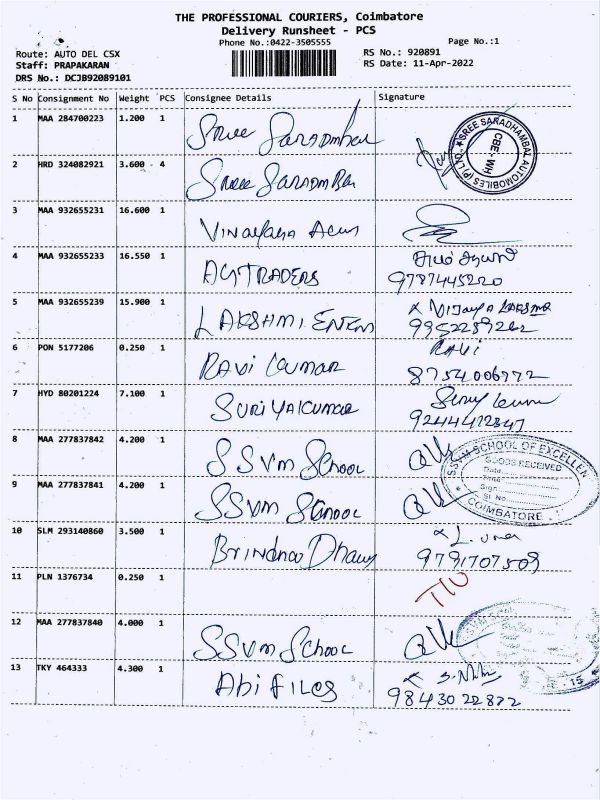 THE PROFESSIONAL COURIERS, Coimbatore
Delivery Runsheet - PCS
Phone No.:0422-3505555
Page No.:1
Route: AUTO DEL CSX
RS No.: 920891
Staff: PRAPAKARAN
RS Date: 11-Apr-2022
DRS No.: DCJB92089101
S No Consignment No Weight PCS Consignee Details Signature
1 MAA 284700223 1.200 1 Sree Saradmbal
SREE SARADHAMBAL AUTOMOBILES (P) LTD. CBE - WH
2 HRD 324082921 3.600 4 Sree Saradmbal
3 MAA 932655231 16.600 1 Vinayaga
4 MAA 932655233 16.550 1 AGTRADERS
9787445220
5 MAA 932655239 15.900 1 LAKSHMI x VIJAYA LAKSHMI
9952289262
6 PON 5177206 0.250 1 RAVI KUMAR RAVI
8754006772
7 HYD 80201224 7.100 1 SURIYAKUMAR
9244412847
8 MAA 277837842 4.200 1 SSVM School
S.S.V.M SCHOOL OF EXCELLEN
GOODS RECEIVED
Date
Time
Sign
Sl. No.
COIMBATORE
9 MAA 277837841 4.200 1 SSVM School
10 SLM 293140860 3.500 1 Brindha
9791707509
11 PLN 1376734 0.250 1
12 MAA 277837840 4.000 1 SSVM School
13 TKY 464333 4.300 1 Abi Files
98430 22872